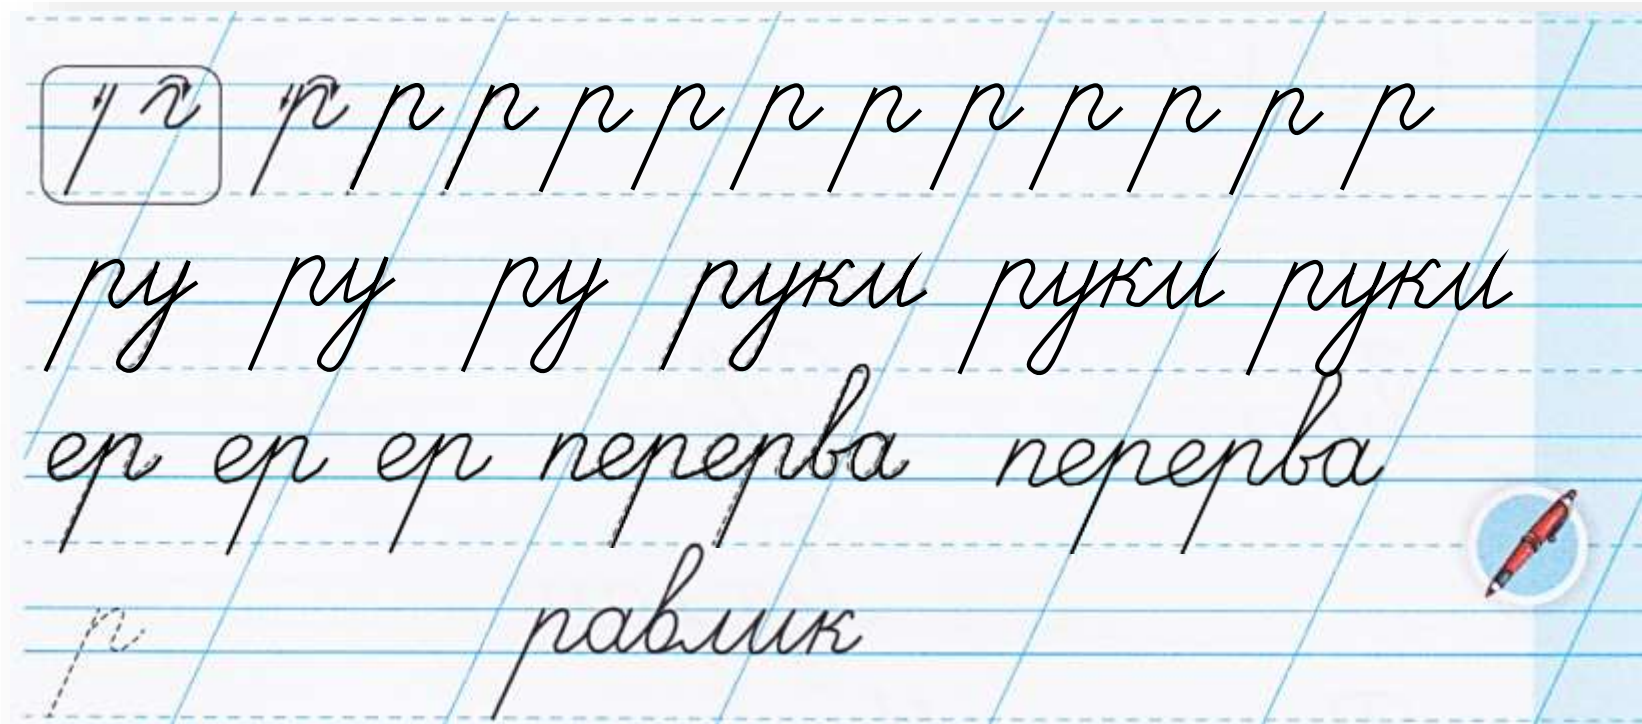 р р р р р р р р р р р р
ру ру ру руки руки руки
ер ер ер перерва перерва
р равлик